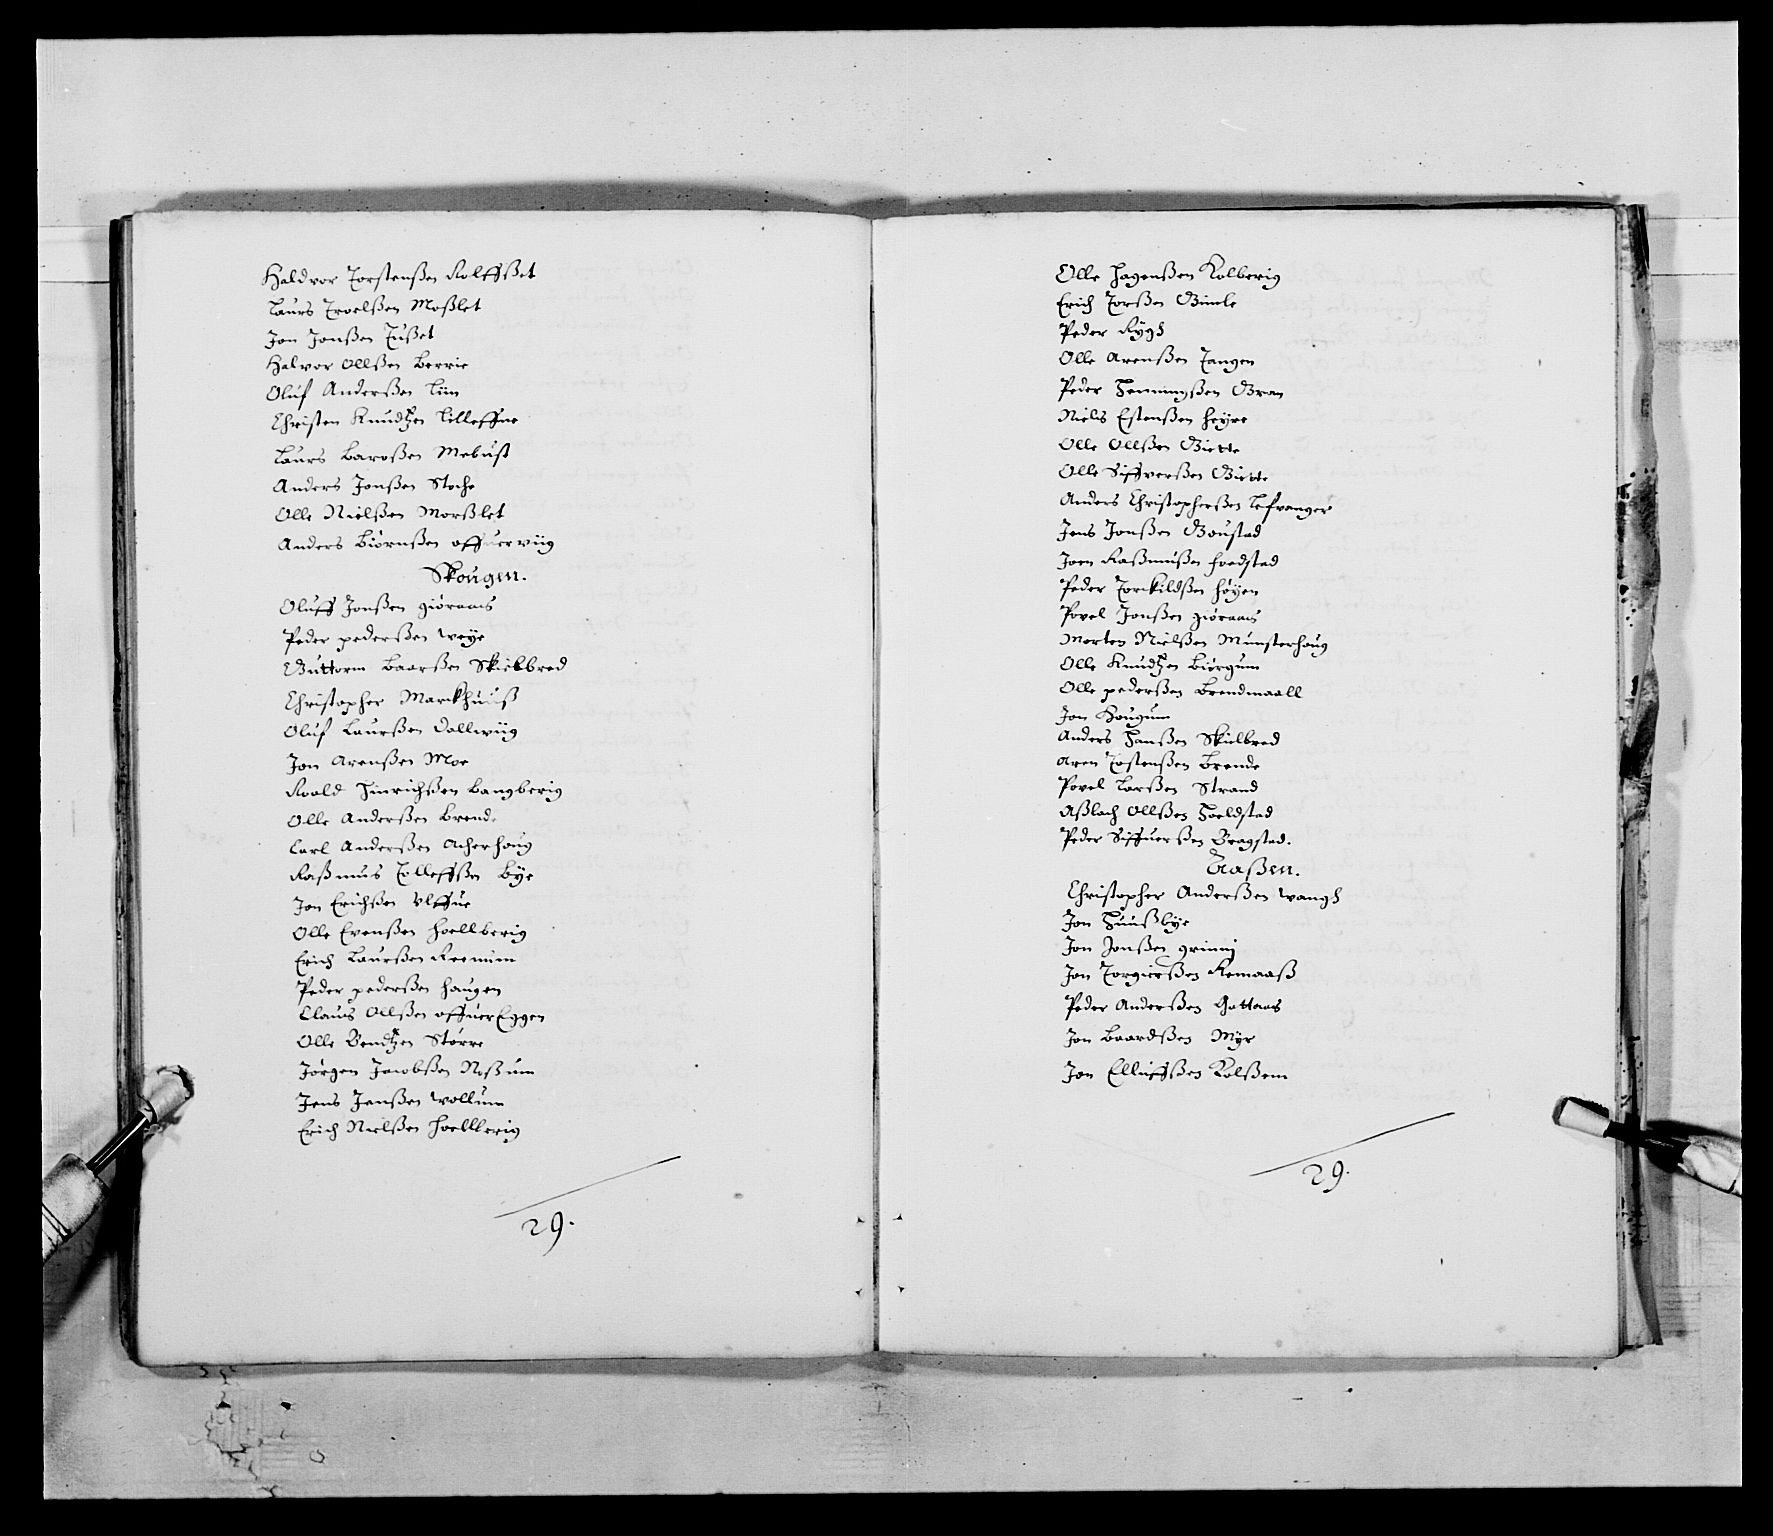 Haldvor Torstenßen Rolffßet
Laurs Troelßen Moßlet
Jon Jonßen Tußet
Halvor Ollßen Berrie
Oluf Anderßen Lim
Christen Knudtzen Lilleffue
Laurs Baroßen Mebust
Anders Jonßen Stoche
Olle Nielßen Morßlet
Anders Biörnßen offuerviig
Skougen.
Oluff Jonßen giöraas
Peder pederßen weye
Guttorm Baarßen Skielbred
Christopher Markhuuß
Oluf Laurßen Dallwiig
Jon Arenßen Moe
Roald Hinrichßen Bangberig
Olle Anderßen Brende
Carl Anderßen Acherhoug
Raßmus Tolleffßen Bÿe
Jon Erichßen Vlffue
Olle Evenßen hoellberig
Erich Laurßen Reemum
Peder pederßen haugen
Claus Ollßen offuerEggen
Olle Bendtzen Større
Jørgen Jacobßen Neßum
Jens Jenßen wollum
Erich Nielßen hoellberig
29.
Olle Hagenßen Kolberig
Erich Torßen Gimle
Peder Rÿgh
Olle Arenßen Tangen
Peder Hemmingßen Gran
Niels Estenßen heyre
Olle Ollßen Giette
Olle Siffverßen Giette
Anders Christopherßen Lefvanger
Jens Jonßen Goustad
Joen Raßmußen hoedstad
Peder Torckildßen høyen
Povel Jonßen giöraas
Morten Nielßen Munsterhaug
Olle Knudtzen Biørgum
Olle pederßen Brendmaall
Jon Hougum
Anders Hanßen Skielbred
Aren Tostenßen Brende
Povel Larßen Strand
Aßlach Ollßen Hoeldstad
Peder Siffuerßen Bragstad.
Aaßen.
Christopher Anderßen wangh
Jon Huußbye
Jon Jonßen grinnj
Jon Torgierßen Remaaß
Peder Anderßen Hottaas
Jon Baardßen Myr
Jon Elluffßen Kolßem
29.